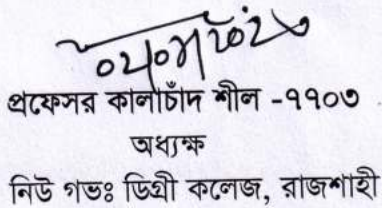 প্রফেসর কালাচাঁদ শীল -৭৭০৩
অধ্যক্ষ
নিউ গভঃ ডিগ্রী কলেজ, রাজশাহী